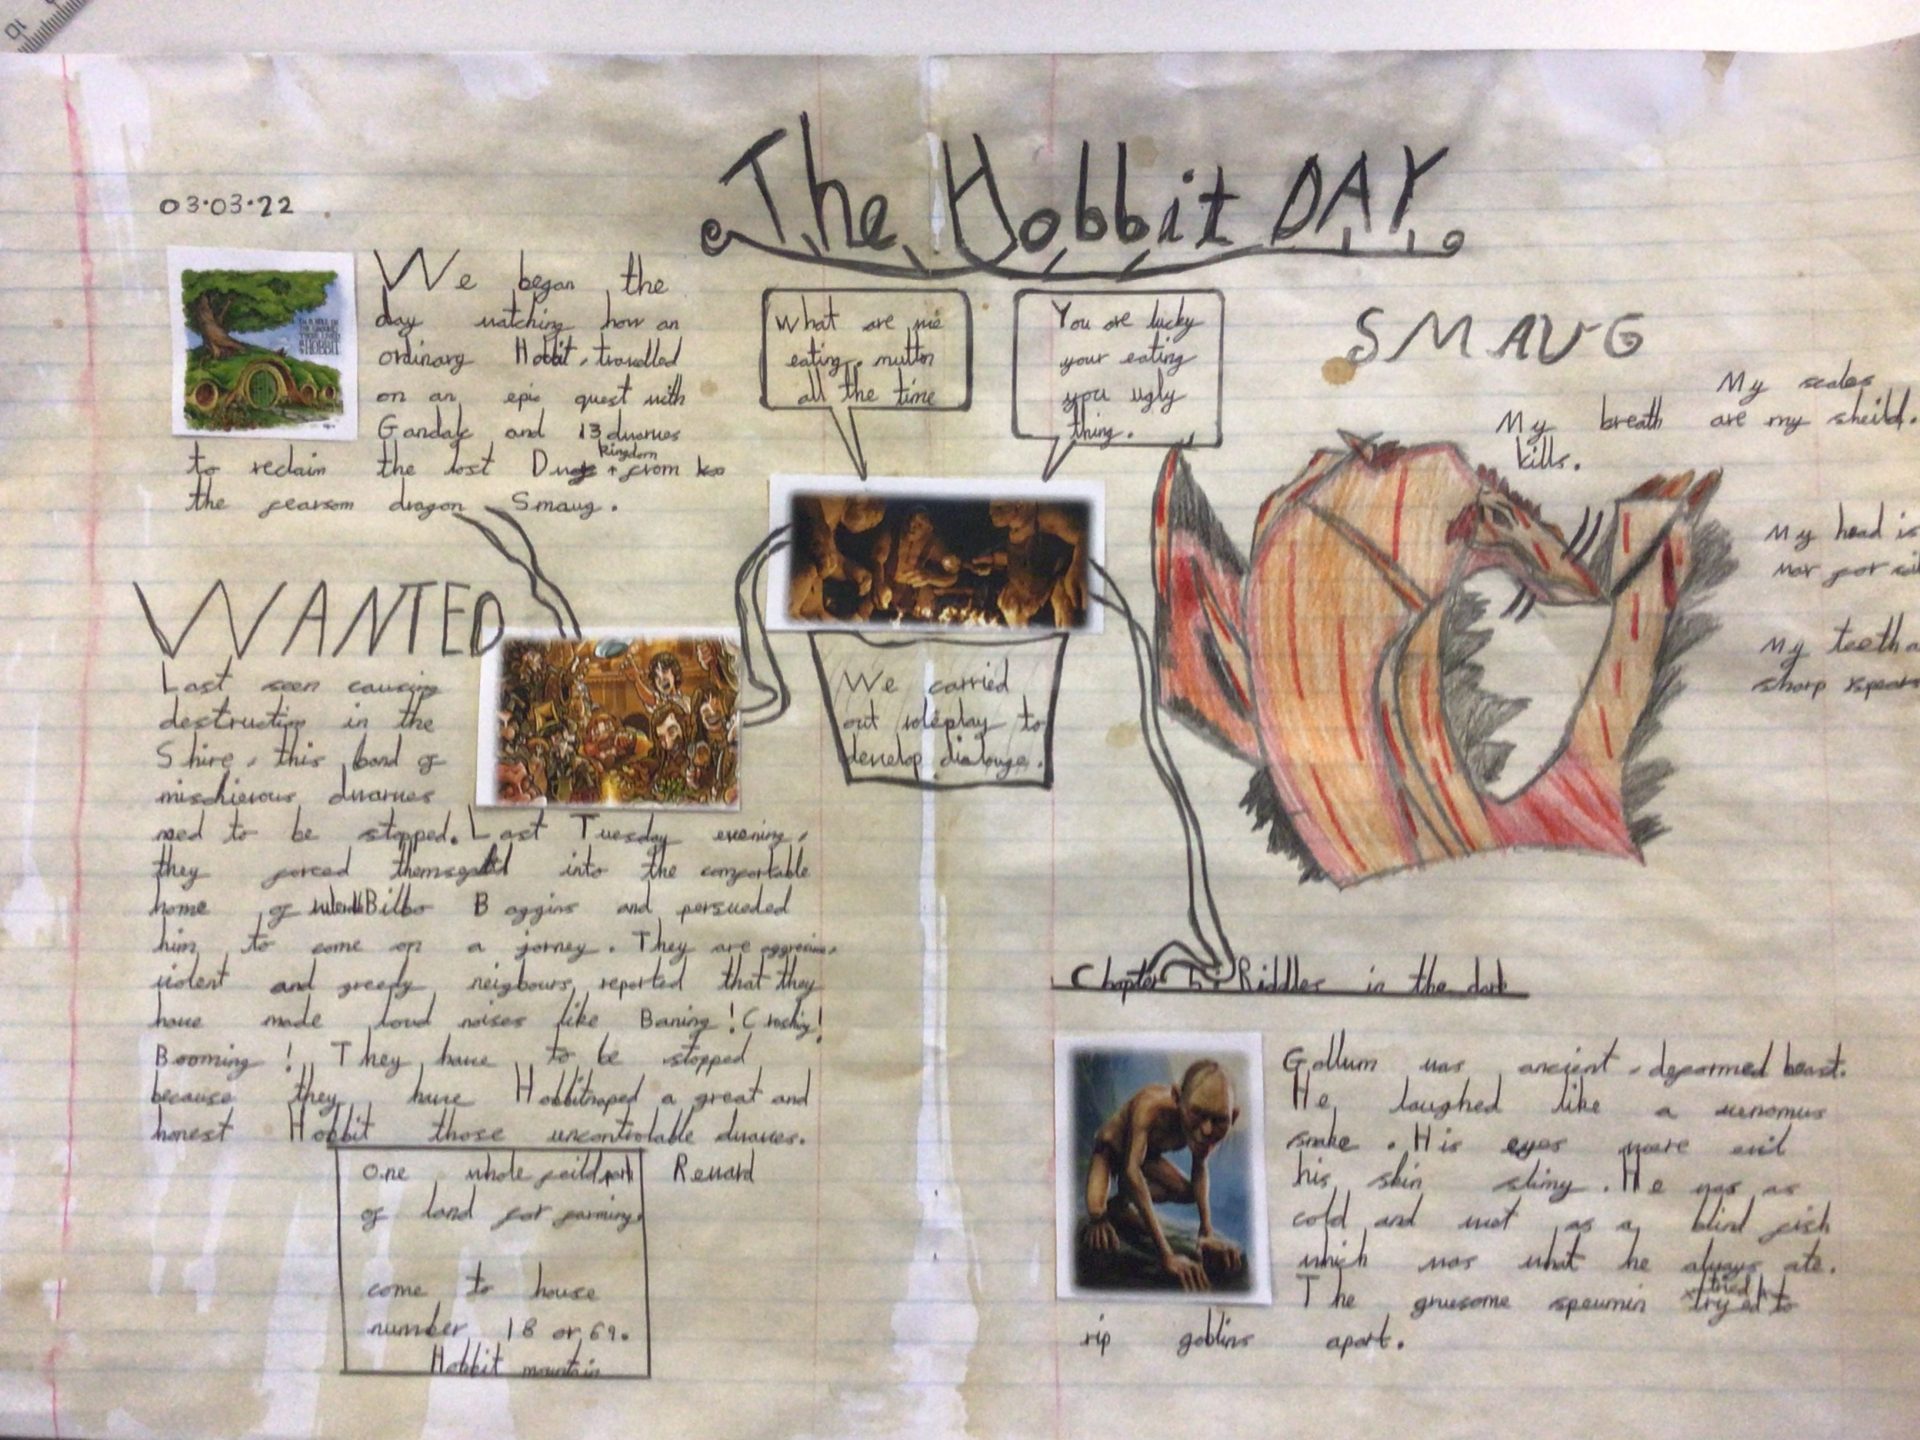 The Hobbit DAY
03.03.22
We began the
day watching how an
ordinary Hobbit, travelled
on an epic quest with
Gandalf and 13 dwarves
to reclaim the lost kingdom from
the fearsom dragon Smaug.
What are we
eating, mutton
all the time
You are lucky
your eating
you ugly
thing.
We carried
out roleplay to
develop dialouge.
SMAUG
My scales
are my sheild.
My breath
kills.
My head is
My teeth
sharp spears
WANTED
Last seen causing
destruction in the
Shire, this band of
mischievous dwarves
need to be stopped. Last Tuesday evening,
they forced into the comfortable
home of Bilbo Baggins and persueded
him to come on a jorney. They are aggressive,
violent and greedy neigbours reported that they
have made loud noises like Baning! Crashing!
Booming! They have to be stopped
because they have Hobbitnaped a great and
honest Hobbit those uncontrolable dwarves.
Reward
one whole
of land for farming.
come to house
number 18 or 69.
Hobbit mountain
Chapter 5: Riddles in the dark
Gollum was ancient, deformed beast.
He laughed like a venomus
snake. His eyes were evil
his skin slimy. He was as
cold and wet as a blind fish
which was what he always ate.
The gruesome speumin tried to
rip goblins apart.